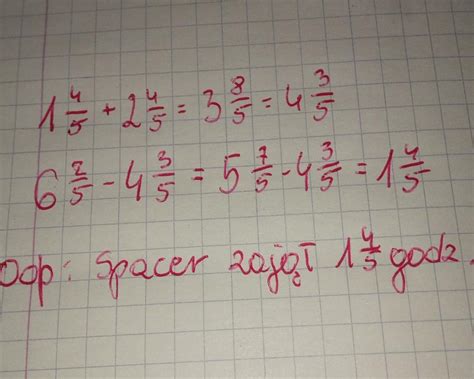 1 4/5 + 2 4/5 = 3 8/5 = 4 3/5
6 2/5 - 4 3/5 = 5 7/5 - 4 3/5 = 1 4/5
Odp: Spacer zajął 1 4/5 godz.